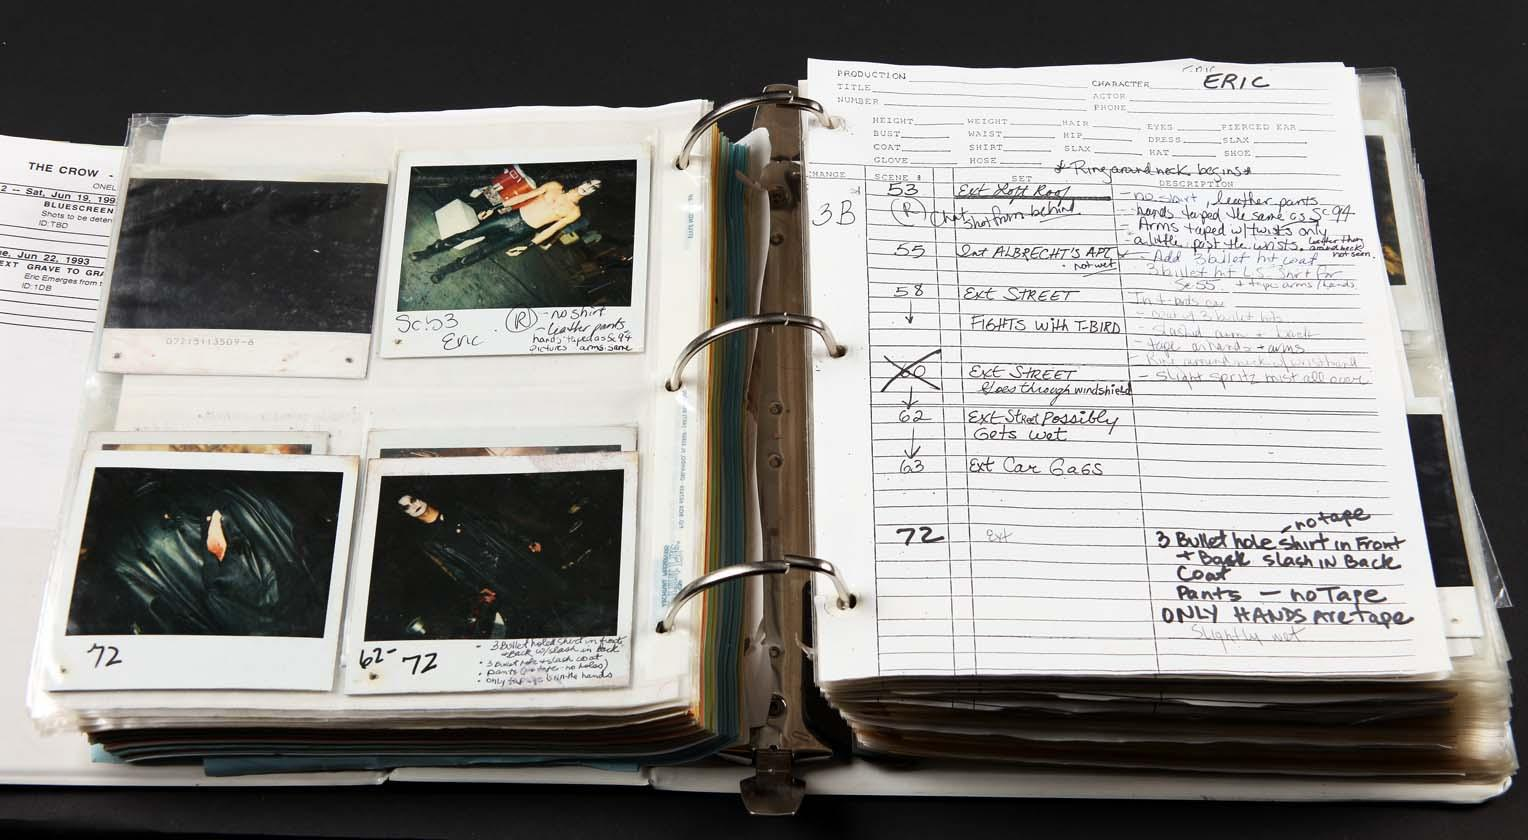 THE CROW -
ONEL
2 -- Sat, Jun 19, 199
BLUESCREEN
Shots to be deter
ID:TBD
e, Jun 22, 1993
EXT GRAVE TO GRA
Eric Emerges from t
ID:1DB
07215113509-6
Sc. 53
Eric
R - no shirt
- leather pants
hands taped as Sc 94
pictures arms same
72
62-72
- 3 Bullet holed shirt in front
+ Back w/slash in back
• 3 Bullet hole + slash coat
• pants (no tape - no holes)
• only tape is on the hands
PRODUCTION
TITLE
NUMBER
CHARACTER ERIC
ACTOR
PHONE
HEIGHT WEIGHT HAIR EYES PIERCED EAR
BUST WAIST HIP DRESS SLAX
COAT SHIRT SLAX HAT SHOE
GLOVE HOSE
* Ring around neck begins *
CHANGE SCENE # SET DESCRIPTION
3B
53 Ext Loft Roof - no shirt, leather pants
R shot from behind - hands taped the same as Sc 94
Arms taped w/ twists only
- a little past the wrists.
not seen.
55 Int ALBRECHT'S APT - Add 3 bullet hit coat
• not wet 3 bullet hit L.S. Shirt for
Sc 55 + tape arms/hands
58 Ext STREET
FIGHTS with T-BIRD
- coat w/ 3 bullet hits
- slashed arm + back
- tape on hands + arms
- Ring around neck w/ wristband
60 Ext STREET - slight spritz mist all over
Goes through windshield
62 Ext Street Possibly
Gets wet
63 Ext Car Gags
72 Ext
- no tape
3 Bullet hole shirt in Front
+ Back slash in Back
Coat
Pants - no Tape
ONLY HANDS Are tape
Slightly wet